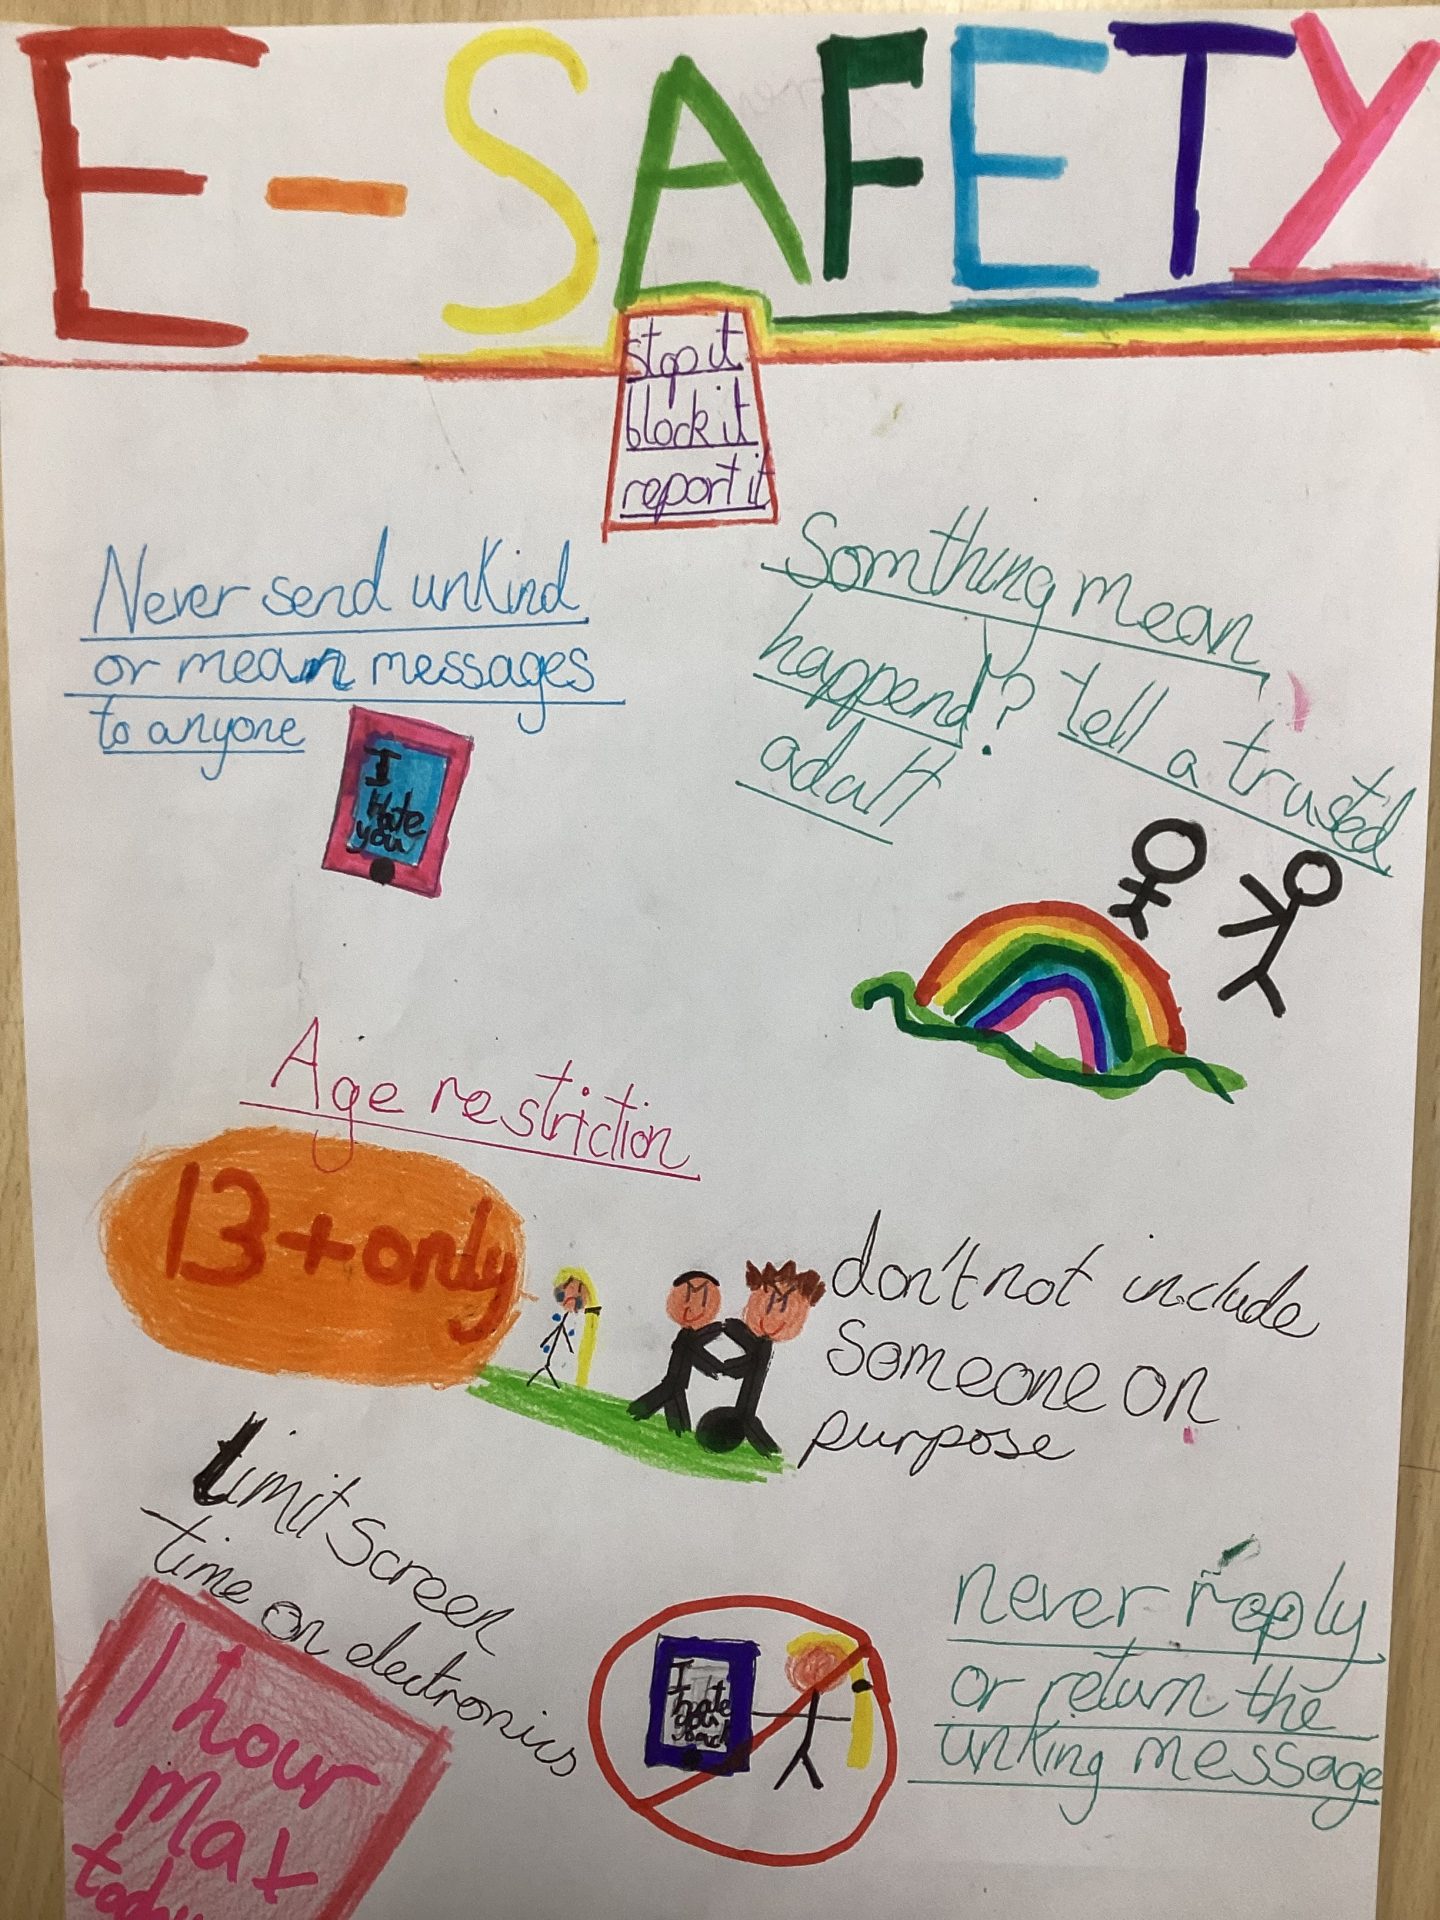 E-SAFETY
stop it
block it
report it
Never send unkind
or mean messages
to anyone
I
Hate
you
Somthing mean
happend? tell a trusted
adult
Age restriction
13+ only
don't not include
someone on
purpose
Limit screen
time on electronics
1 hour
Max
today
I
hate
you
back
never reply
or return the
unking message